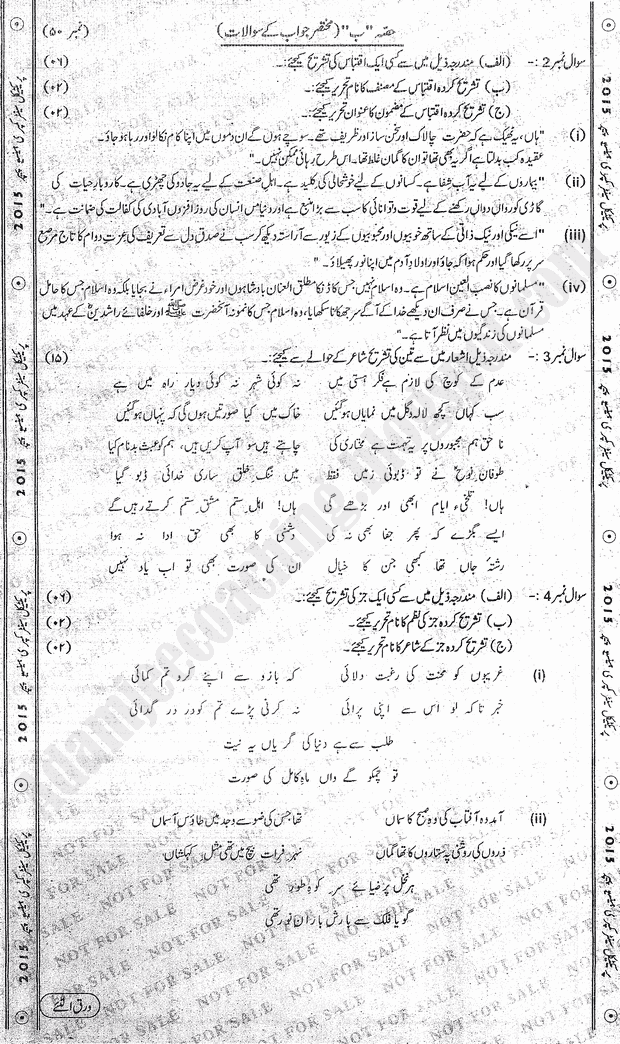 حصّہ "ب" (مختصر جواب کے سوالات) (نمبر ۵۰)
سوال نمبر 2 :- (الف) مندرجہ ذیل میں سے کسی ایک اقتباس کی تشریح کیجئے:۔ (۰۶)
(ب) تشریح کردہ اقتباس کے مصنف کا نام تحریر کیجئے۔ (۰۲)
(ج) تشریح کردہ اقتباس کے مضمون کا عنوان تحریر کیجئے۔ (۰۲)
(i) "ہاں، یہ ٹھیک ہے کہ حضرت چالاک اور سخن ساز اور ظریف تھے۔ سوچے ہوں گے ان دموں میں اپنا کام نکالو اور رہا ہو جاؤ۔
عقیدہ کب بدلتا ہے اگر یہ بھی تھا تو ان کا گمان غلط تھا۔ اس طرح رہائی ممکن نہیں۔"
(ii) "بیماروں کے لیے یہ آبِ شفا ہے۔ کسانوں کے لیے خوشحالی کی کلید ہے۔ اہلِ صنعت کے لیے یہ جادو کی چھڑی ہے۔ کاروبارِ حیات کی
گاڑی کو رواں دواں رکھنے کے لیے قوت و توانائی کا سب سے بڑا منبع ہے اور دنیا میں انسان کی روز افزوں آبادی کی کفالت کی ضمانت ہے۔"
(iii) "اسے نیکی اور نیک ذاتی کے ساتھ خوبیوں اور محبوبیوں کے زیور سے آراستہ دیکھ کر سب نے صدقِ دل سے تعریف کی عزتِ دوام کا تاج مرصع
سر پر رکھا گیا اور حکم ہوا کہ جاؤ اور اولادِ آدم میں اپنا نور پھیلاؤ۔"
(iv) "مسلمانوں کا نصب العین اسلام ہے۔ وہ اسلام نہیں جس کا ڈنکا مطلق العنان بادشاہوں اور خود غرض امراء نے بجایا بلکہ وہ اسلام جس کا حامل
قرآن ہے۔ جس نے صرف ان دیکھے خدا کے آگے سر جھکانا سکھایا، وہ اسلام جس کا نمونہ آنحضرت ﷺ اور خلفائے راشدینؓ کے عہد میں
مسلمانوں کی زندگیوں میں نظر آتا ہے۔"
سوال نمبر 3 :- مندرجہ ذیل اشعار میں سے تین کی تشریح شاعر کے حوالے سے کیجئے:۔ (۱۵)
عدم کے کوچ کی لازم ہے فکر ہستی میں نہ کوئی شہر نہ کوئی دیار راہ میں ہے
سب کہاں کچھ لالہ و گل میں نمایاں ہوگئیں خاک میں کیا صورتیں ہوں گی کہ پنہاں ہوگئیں
ناحق ہم مجبوروں پر یہ تہمت ہے مختاری کی چاہتے ہیں سو آپ کریں ہیں، ہم کو عبث بدنام کیا
طوفانِ نوحؑ نے تو ڈبوئی زمیں فقط میں ننگِ خلق ساری خدائی ڈبو گیا
ہاں! تلخیٔ ایام ابھی اور بڑھے گی ہاں! اہلِ ستم مشقِ ستم کرتے رہیں گے
ایسے بگڑے کہ پھر جفا بھی نہ کی دشمنی کا بھی حق ادا نہ ہوا
رشتۂ جاں تھا کبھی جن کا خیال ان کی صورت بھی تو اب یاد نہیں
سوال نمبر 4 :- (الف) مندرجہ ذیل میں سے کسی ایک جز کی تشریح کیجئے:۔ (۰۶)
(ب) تشریح کردہ جز کی نظم کا نام تحریر کیجئے۔ (۰۲)
(ج) تشریح کردہ جز کے شاعر کا نام تحریر کیجئے۔ (۰۲)
(i) غریبوں کو محنت کی رغبت دلائی کہ بازو سے اپنے کرو تم کمائی
خبر تا کہ لو اس سے اپنی پرائی نہ کرنی پڑے تم کو در در گدائی
طلب سے ہے دنیا کی گر یاں یہ نیت
تو چمکو گے واں ماہِ کامل کی صورت
(ii) آمد وہ آفتاب کی وہ صبح کا سماں تھا جس کی ضو سے وجد میں طاؤسِ آسماں
ذروں کی روشنی پہ ستاروں کا تھا گماں نہرِ فرات بیچ میں تھی مثلِ کہکشاں
ہر نخل پر ضیائے سرِ کوہِ طور تھی
گویا فلک سے بارشِ بارانِ نور تھی
ورق الٹئے
2015
NOT FOR SALE
adamjeecoaching